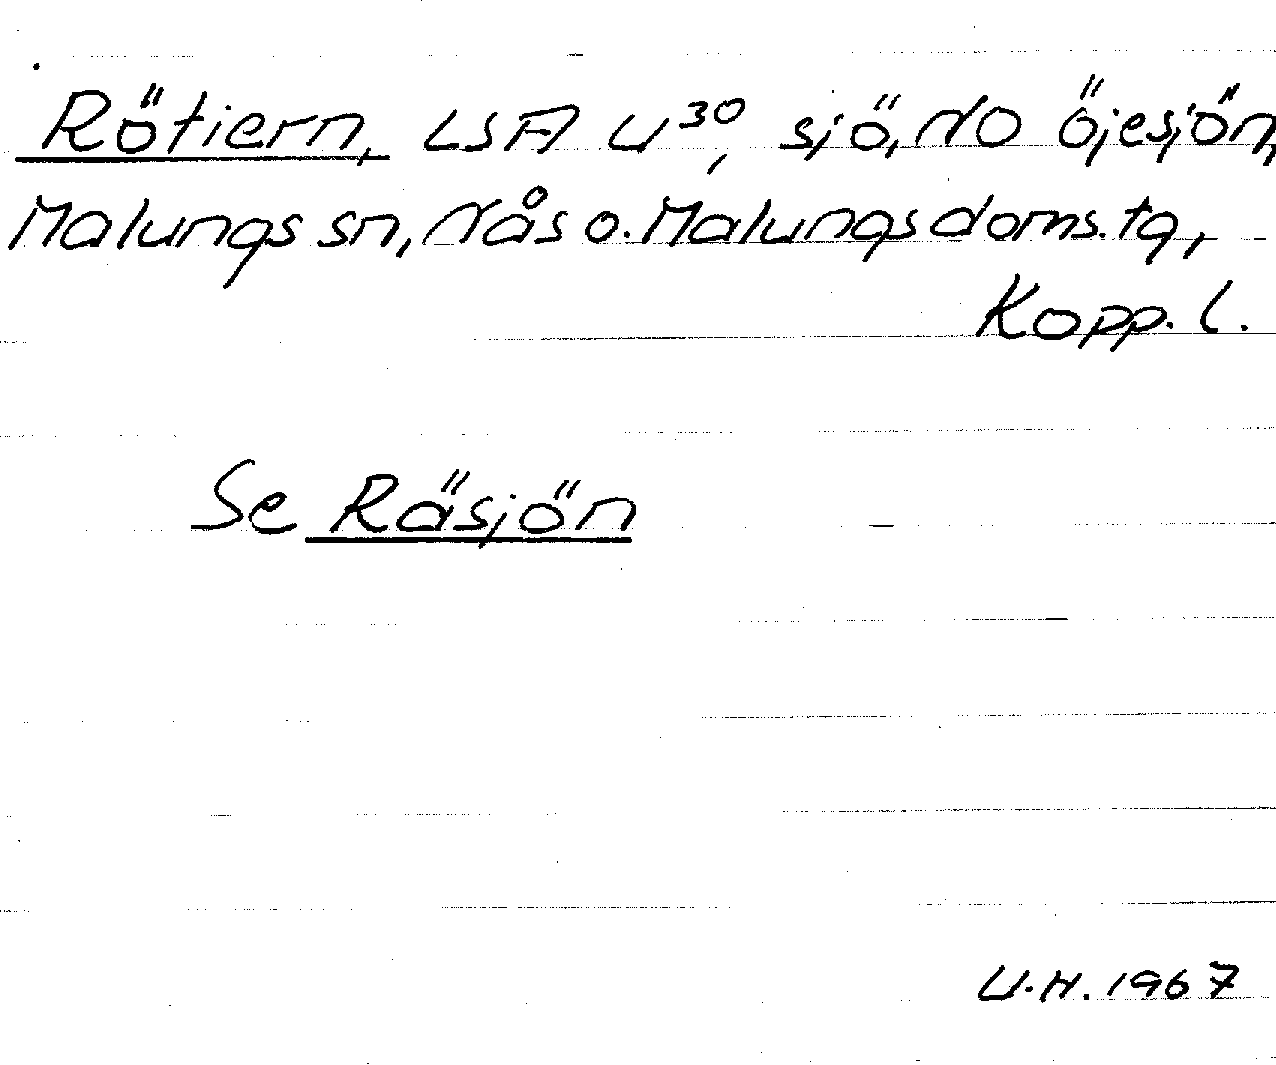 Rötiern, LSA U³⁰, sjö, NO Öjesjön,
Malungs sn, Nås o. Malungs doms. tg,
Kopp. l.
Se Räsjön
U.H. 1967